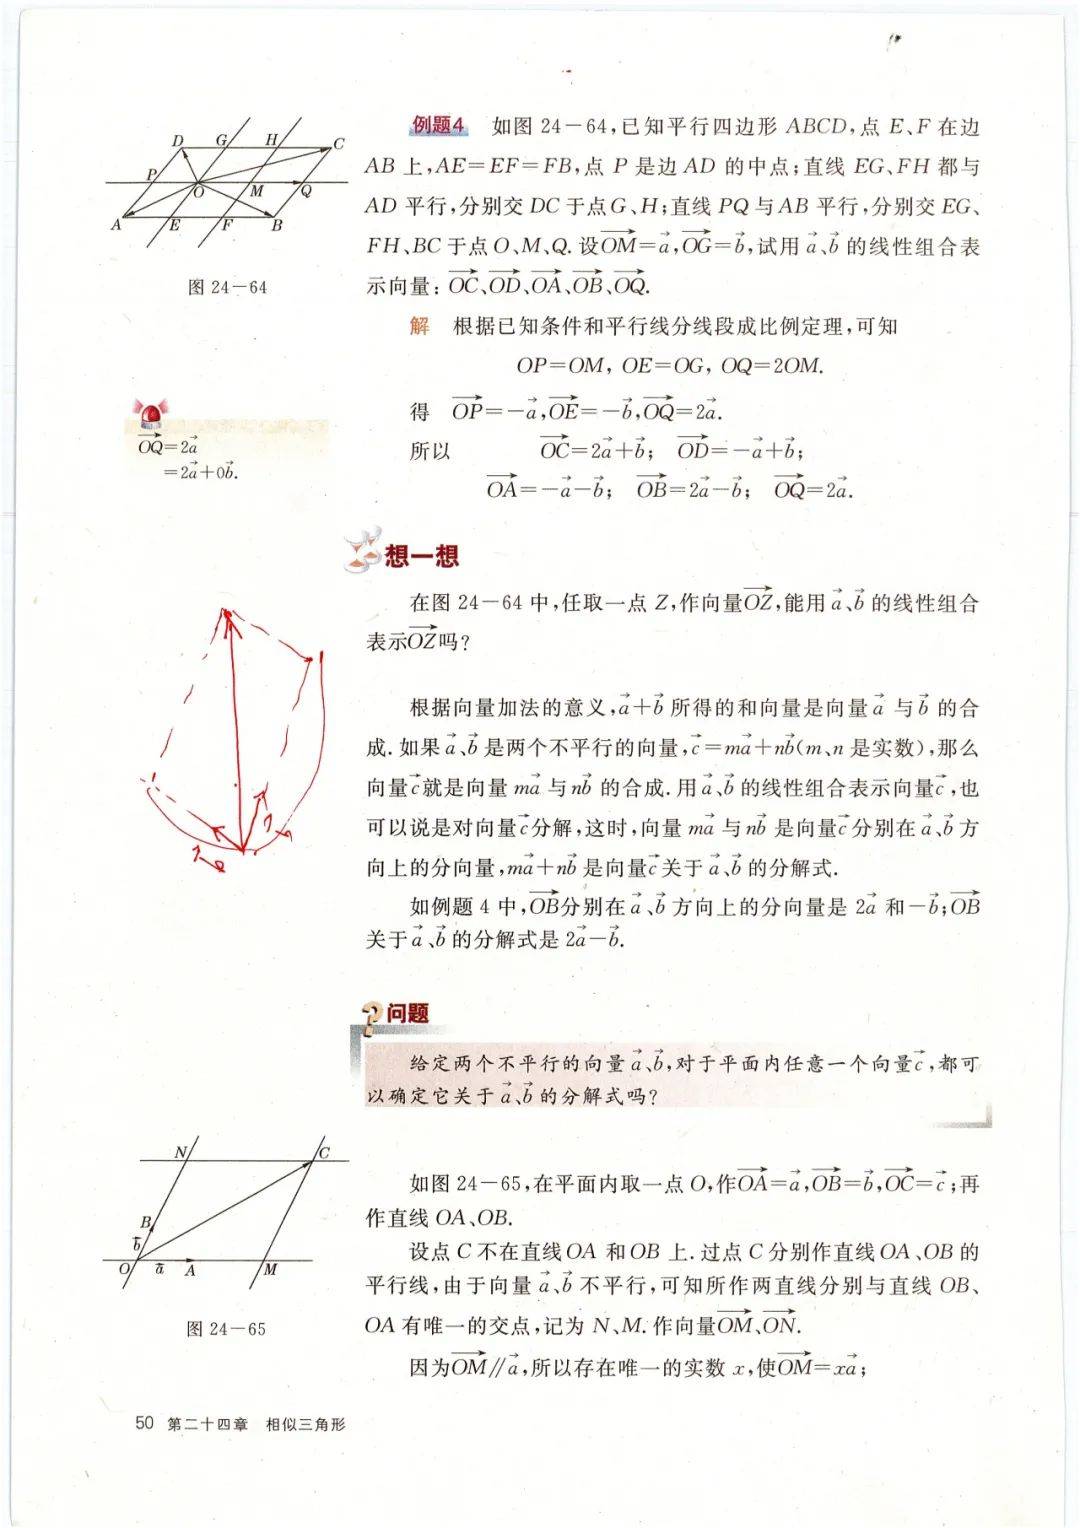 例题4 如图 24-64,已知平行四边形 ABCD,点 E、F 在边
AB 上,AE=EF=FB,点 P 是边 AD 的中点;直线 EG、FH 都与
AD 平行,分别交 DC 于点G、H;直线 PQ 与AB 平行,分别交 EG、
FH、BC 于点 O、M、Q. 设$\overrightarrow{OM}=\vec{a}$,$\overrightarrow{OG}=\vec{b}$,试用 $\vec{a}$、$\vec{b}$ 的线性组合表
示向量: $\overrightarrow{OC}$、$\overrightarrow{OD}$、$\overrightarrow{OA}$、$\overrightarrow{OB}$、$\overrightarrow{OQ}$.
D G H C
P O M Q
A E F B
图 24-64
解 根据已知条件和平行线分线段成比例定理,可知
OP=OM, OE=OG, OQ=2OM.
得 $\overrightarrow{OP}=-\vec{a}$,$\overrightarrow{OE}=-\vec{b}$,$\overrightarrow{OQ}=2\vec{a}$.
所以 $\overrightarrow{OC}=2\vec{a}+\vec{b}$; $\overrightarrow{OD}=-\vec{a}+\vec{b}$;
$\overrightarrow{OA}=-\vec{a}-\vec{b}$; $\overrightarrow{OB}=2\vec{a}-\vec{b}$; $\overrightarrow{OQ}=2\vec{a}$.
$\overrightarrow{OQ}=2\vec{a}$
$=2\vec{a}+0\vec{b}$.
想一想
在图 24-64 中,任取一点 Z,作向量$\overrightarrow{OZ}$,能用 $\vec{a}$、$\vec{b}$ 的线性组合
表示$\overrightarrow{OZ}$吗?
根据向量加法的意义,$\vec{a}+\vec{b}$ 所得的和向量是向量 $\vec{a}$ 与 $\vec{b}$ 的合
成. 如果 $\vec{a}$、$\vec{b}$ 是两个不平行的向量,$\vec{c}=m\vec{a}+n\vec{b}$(m、n 是实数),那么
向量 $\vec{c}$ 就是向量 $m\vec{a}$ 与 $n\vec{b}$ 的合成. 用 $\vec{a}$、$\vec{b}$ 的线性组合表示向量 $\vec{c}$,也
可以说是对向量 $\vec{c}$ 分解,这时,向量 $m\vec{a}$ 与 $n\vec{b}$ 是向量 $\vec{c}$ 分别在 $\vec{a}$、$\vec{b}$ 方
向上的分向量,$m\vec{a}+n\vec{b}$ 是向量 $\vec{c}$ 关于 $\vec{a}$、$\vec{b}$ 的分解式.
如例题 4 中,$\overrightarrow{OB}$分别在 $\vec{a}$、$\vec{b}$ 方向上的分向量是 $2\vec{a}$ 和$-\vec{b}$;$\overrightarrow{OB}$
关于 $\vec{a}$、$\vec{b}$ 的分解式是 $2\vec{a}-\vec{b}$.
问题
给定两个不平行的向量 $\vec{a}$、$\vec{b}$,对于平面内任意一个向量 $\vec{c}$,都可
以确定它关于 $\vec{a}$、$\vec{b}$ 的分解式吗?
N C
B
$\vec{b}$
O $\vec{a}$ A M
图 24-65
如图 24-65,在平面内取一点 O,作$\overrightarrow{OA}=\vec{a}$,$\overrightarrow{OB}=\vec{b}$,$\overrightarrow{OC}=\vec{c}$;再
作直线 OA、OB.
设点 C 不在直线 OA 和 OB 上. 过点 C 分别作直线 OA、OB 的
平行线,由于向量 $\vec{a}$、$\vec{b}$ 不平行,可知所作两直线分别与直线 OB、
OA 有唯一的交点,记为 N、M. 作向量$\overrightarrow{OM}$、$\overrightarrow{ON}$.
因为$\overrightarrow{OM}$∥$\vec{a}$,所以存在唯一的实数 x,使$\overrightarrow{OM}=x\vec{a}$;
50 第二十四章 相似三角形